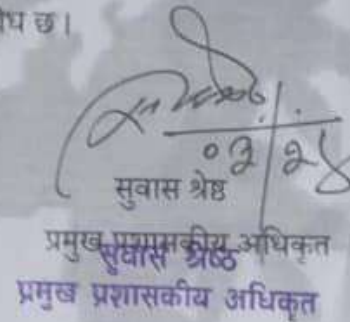 छ।
०३/२५
सुवास श्रेष्ठ
प्रमुख प्रशासकीय अधिकृत
सुवास श्रेष्ठ
प्रमुख प्रशासकीय अधिकृत